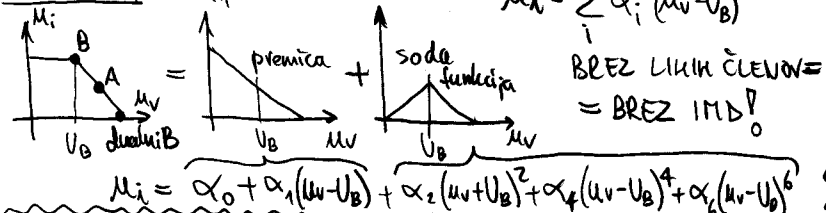 μᵢ = Σᵢ αᵢ (μᵥ-U_B)
μᵢ
B
A
U_B dualni B μᵥ
=
premica
U_B μᵥ
+
soda funkcija
U_B μᵥ
BREZ LIHIH ČLENOV =
= BREZ IMD!
μᵢ = α₀ + α₁(μᵥ-U_B) + α₂(μᵥ+U_B)² + α₄(μᵥ-U_B)⁴ + α₆(μᵥ-U_B)⁶